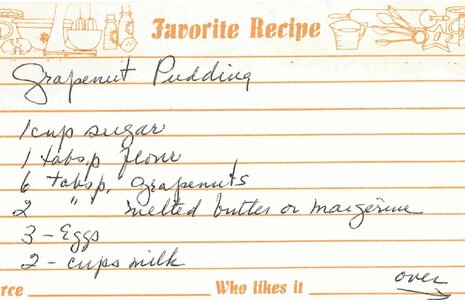 Favorite Recipe
Grapenut Pudding
1 cup sugar
1 tabsp flour
6 tabsp. grapenuts
2 " " melted butter or margerine
3 - Eggs
2 - cups milk
over
rce Who likes it